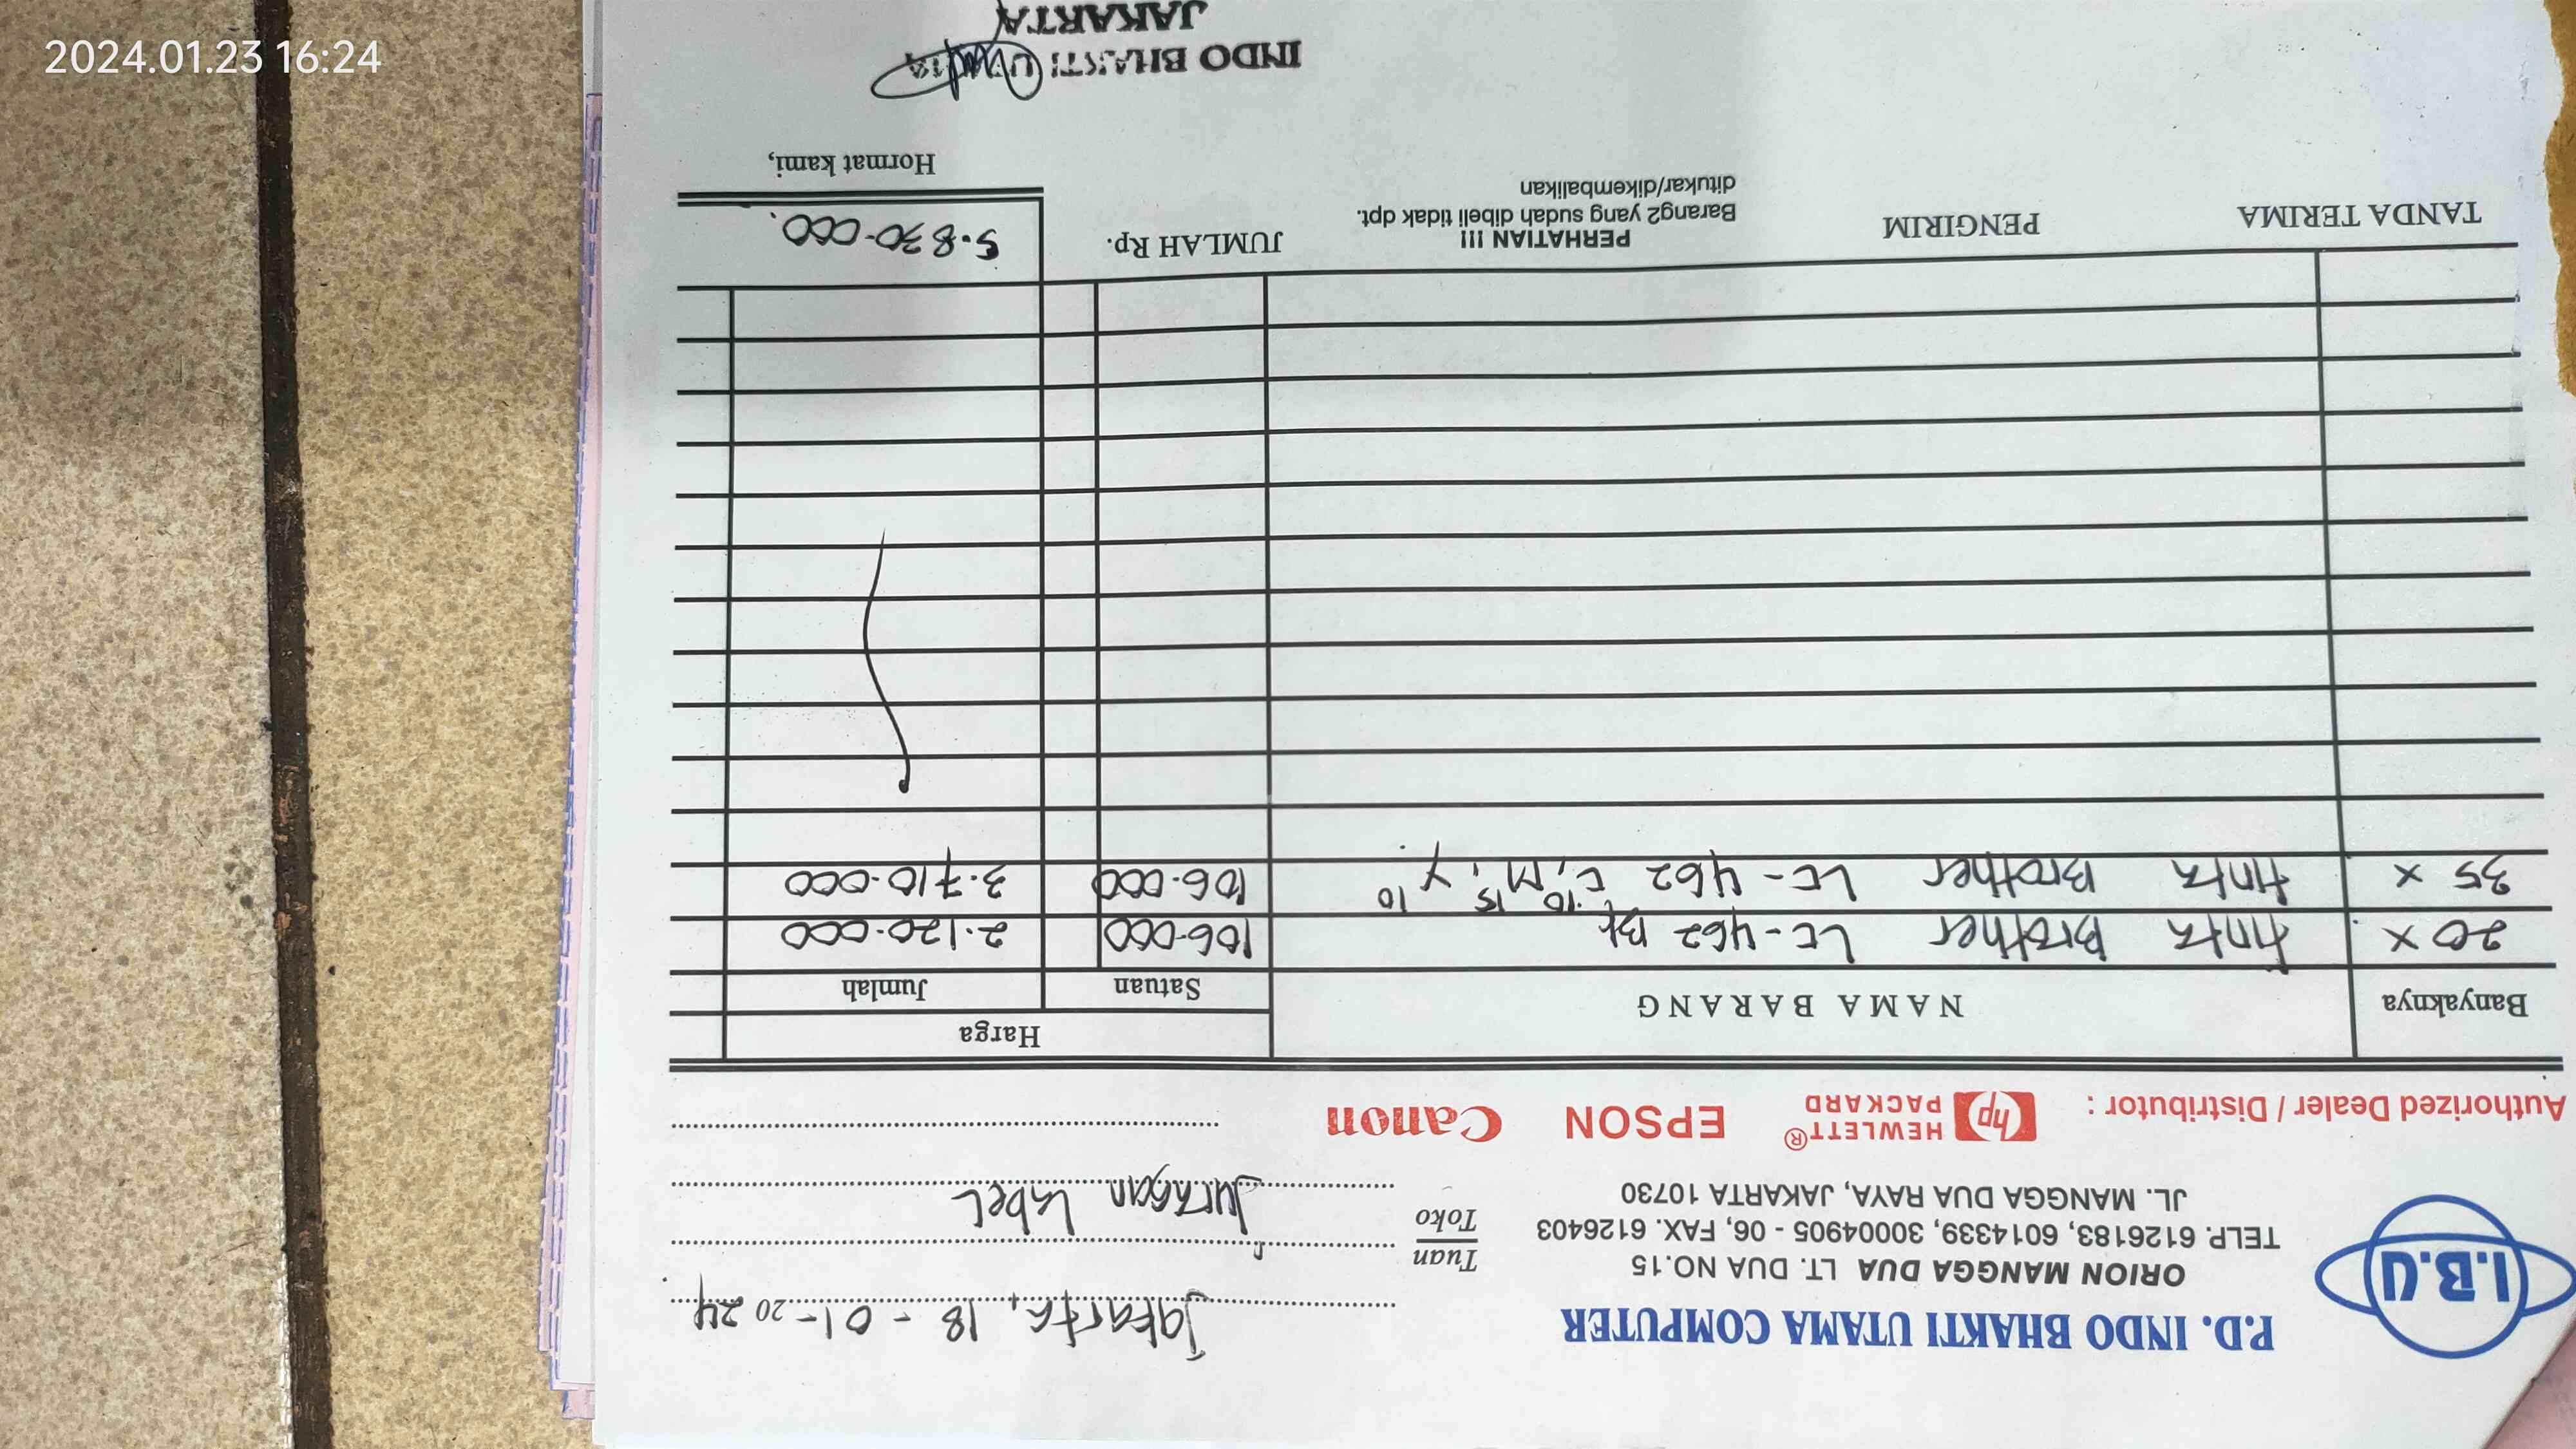 2024.01.23 16:24
I.B.U
P.D. INDO BHAKTI UTAMA COMPUTER
ORION MANGGA DUA LT. DUA NO.15
TELP. 6126183, 6014339, 30004905 - 06, FAX. 6126403
JL. MANGGA DUA RAYA, JAKARTA 10730
Jakarta, 18 - 01 - 20 24
Tuan
Toko
Juragan Label
Authorized Dealer / Distributor : hp HEWLETT® PACKARD EPSON Canon
Banyaknya NAMA BARANG Harga
Satuan Jumlah
20 x tinta Brother LC-462 Bk 106.000 2.120.000
35 x tinta Brother LC-462 C, M, Y 106.000 3.710.000
10 15 10
TANDA TERIMA PENGIRIM
PERHATIAN !!!
Barang2 yang sudah dibeli tidak dpt.
ditukar/dikembalikan
JUMLAH Rp. 5.830.000
Hormat kami,
INDO BHAKTI UTAMA
JAKARTA